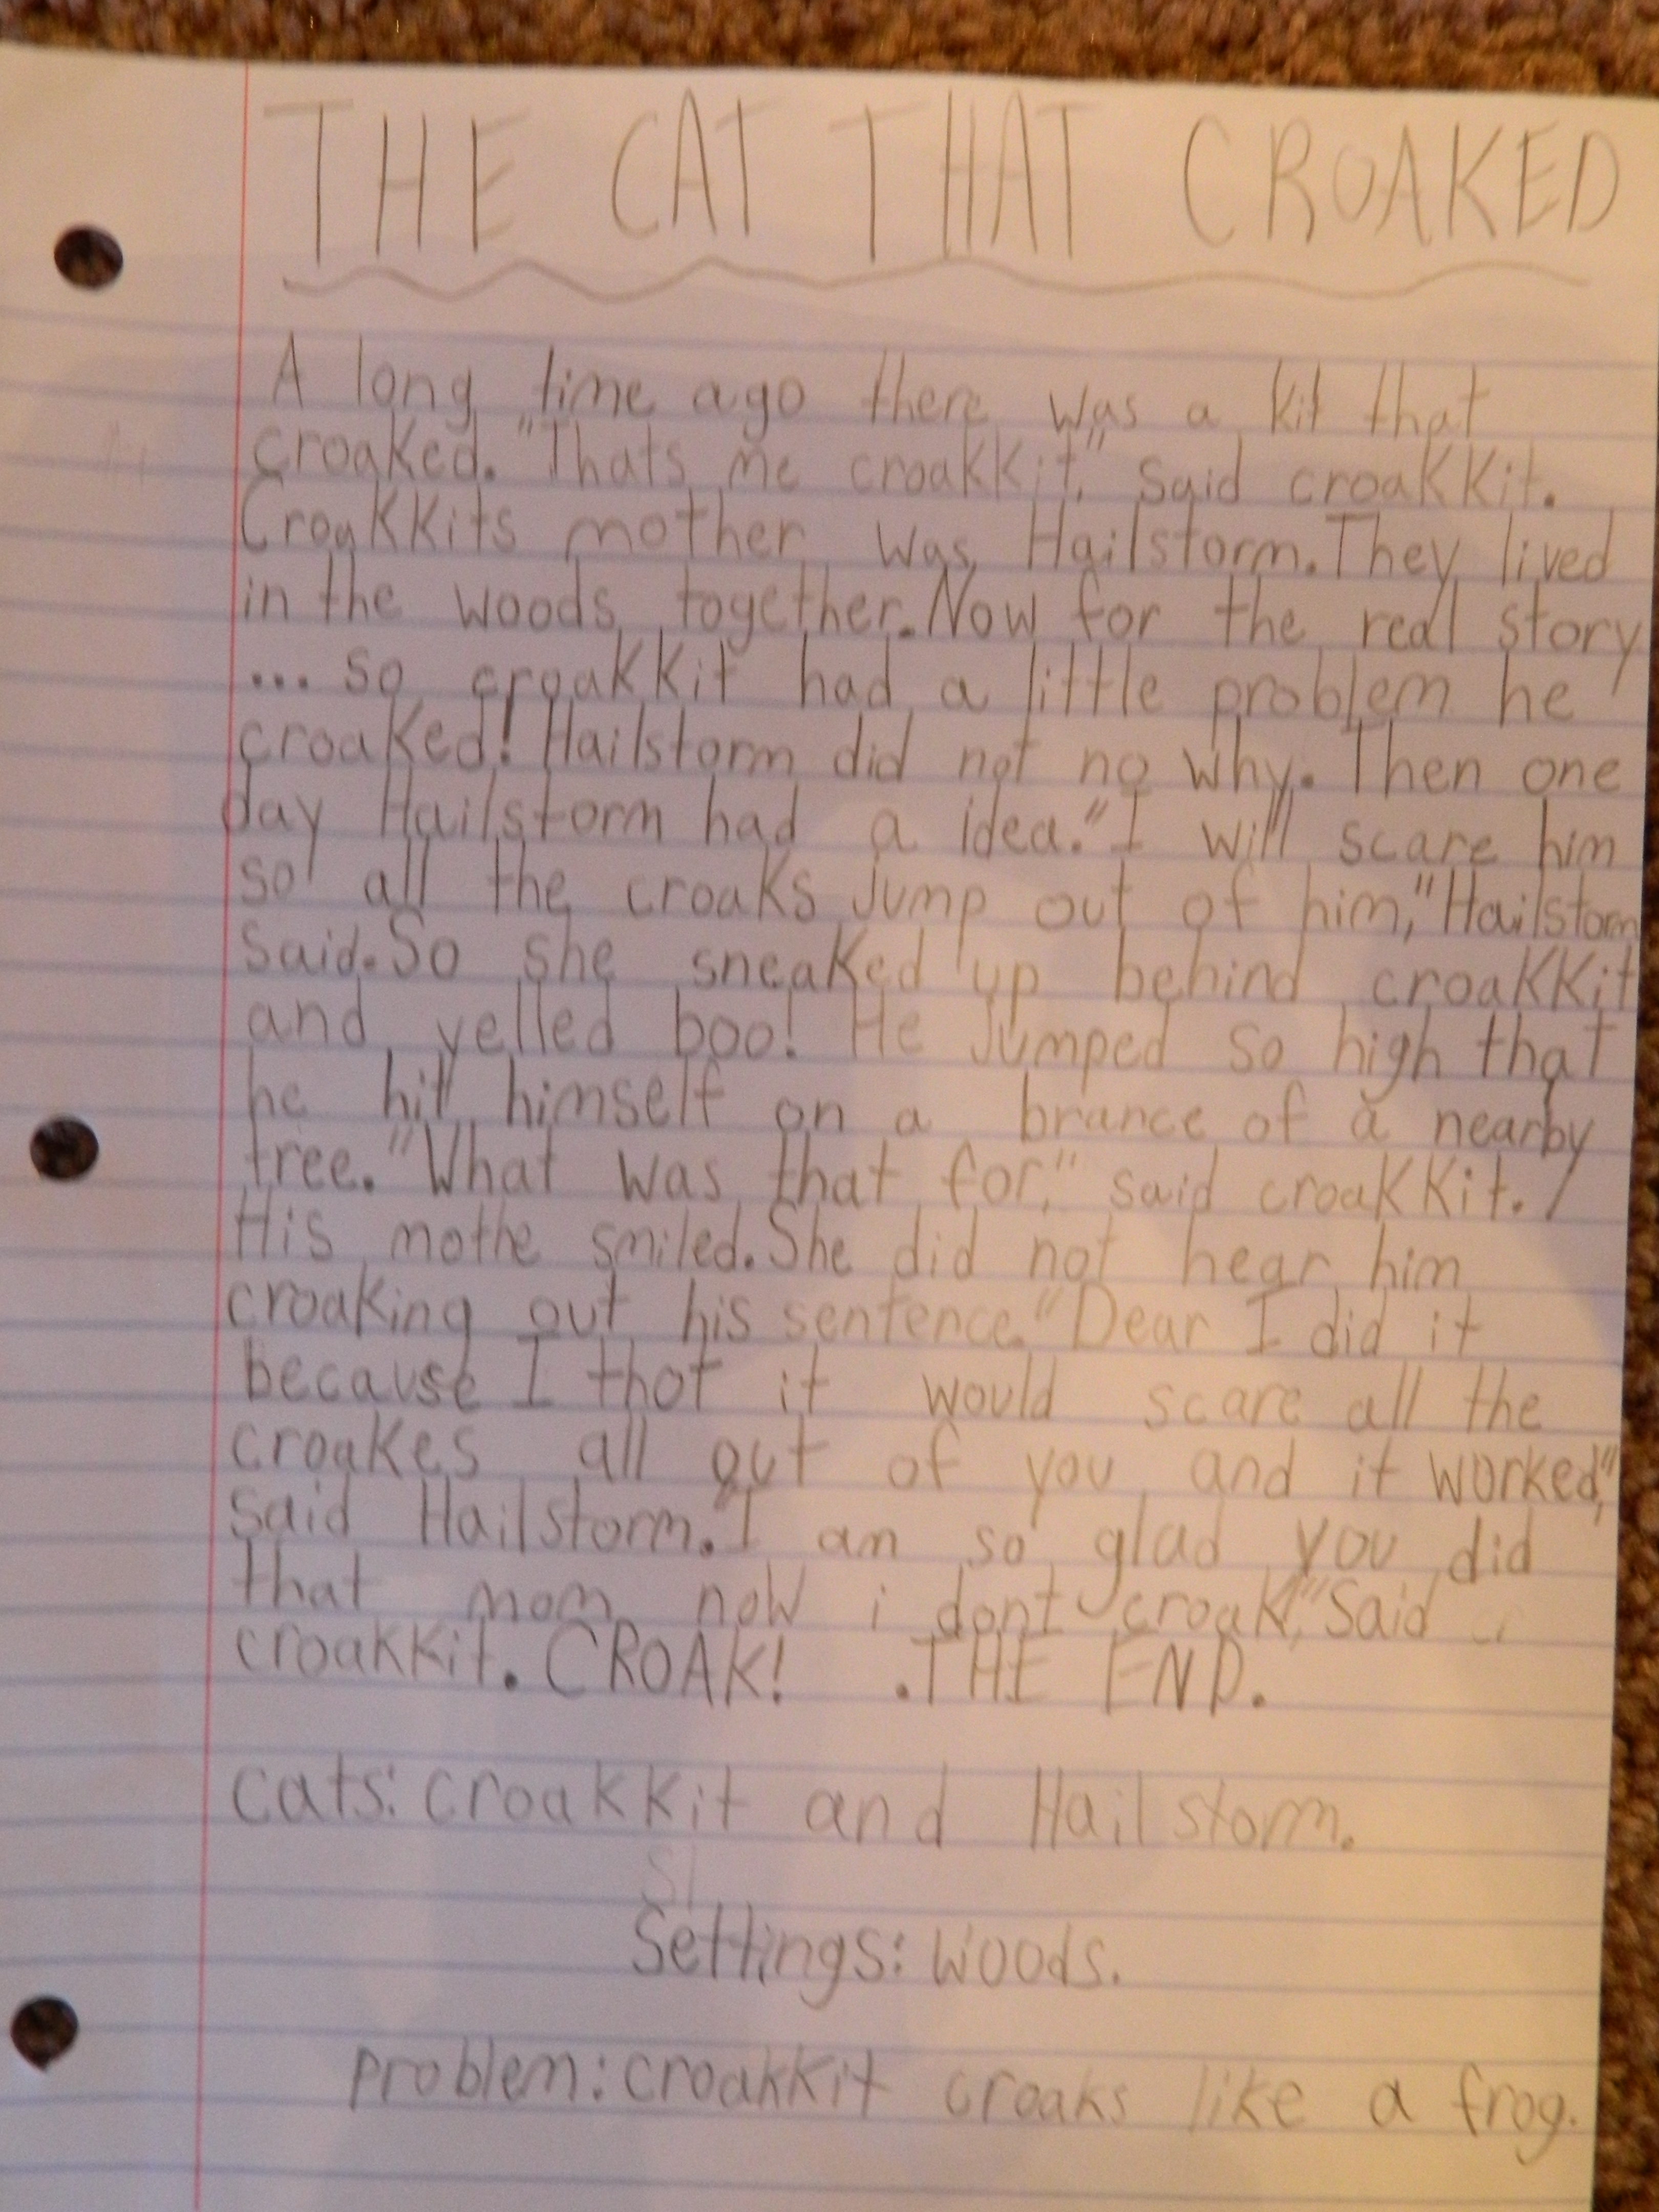 THE CAT THAT CROAKED
A long time ago there was a kit that
croaked. "Thats me croakkit," said croakkit.
Croakkits mother was Hailstorm. They lived
in the woods together. Now for the real story
... so croakkit had a little problem he
croaked! Hailstorm did not no why. Then one
day Hailstorm had a idea. "I will scare him
so all the croaks jump out of him," Hailstorm
said. So she sneaked up behind croakkit
and yelled boo! He jumped so high that
he hit himself on a brance of a nearby
tree. "What was that for," said croakkit.
His mothe smiled. She did not hear him
croaking out his sentence. "Dear I did it
because I thot it would scare all the
croakes all out of you and it worked,"
said Hailstorm. "I am so glad you did
that mom now i dont croak," said
croakkit. CROAK! .THE END.
cats: croakkit and Hailstorm.
Settings: woods.
problem: croakkit croaks like a frog.